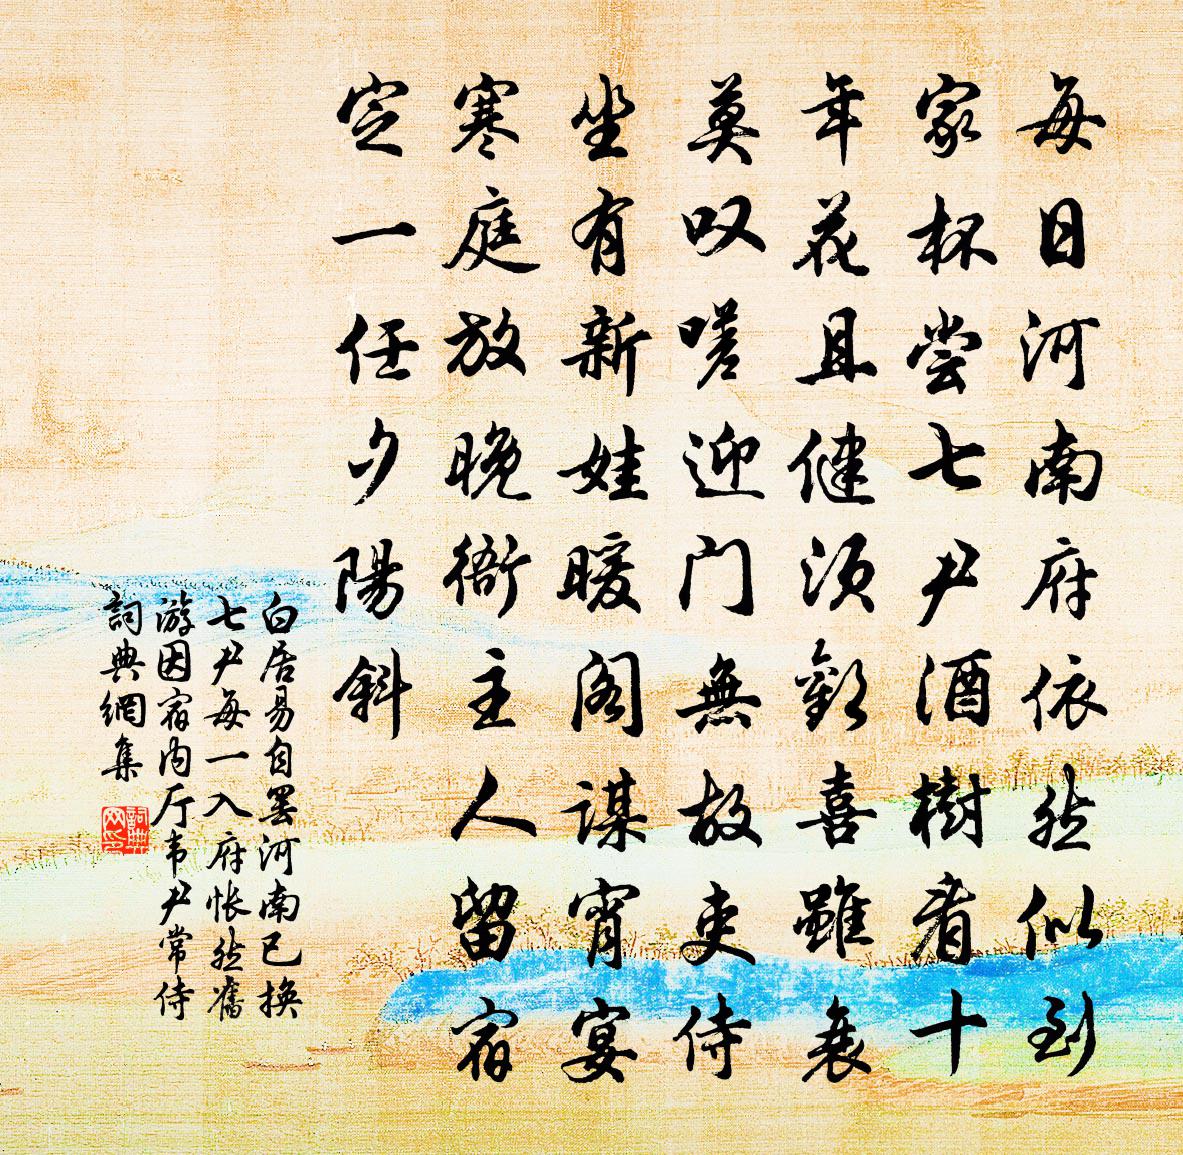 每日河南府依然似到
家杯尝七尹酒樹看十
年花且健须歡喜雖衰
莫叹嗟迎门無故吏侍
坐有新娃暖阁谋宵宴
寒庭放晚衙主人留宿
定一任夕陽斜
白居易自罢河南已换
七尹每一入府怅然舊
游因宿内厅韦尹常侍
詞典網集